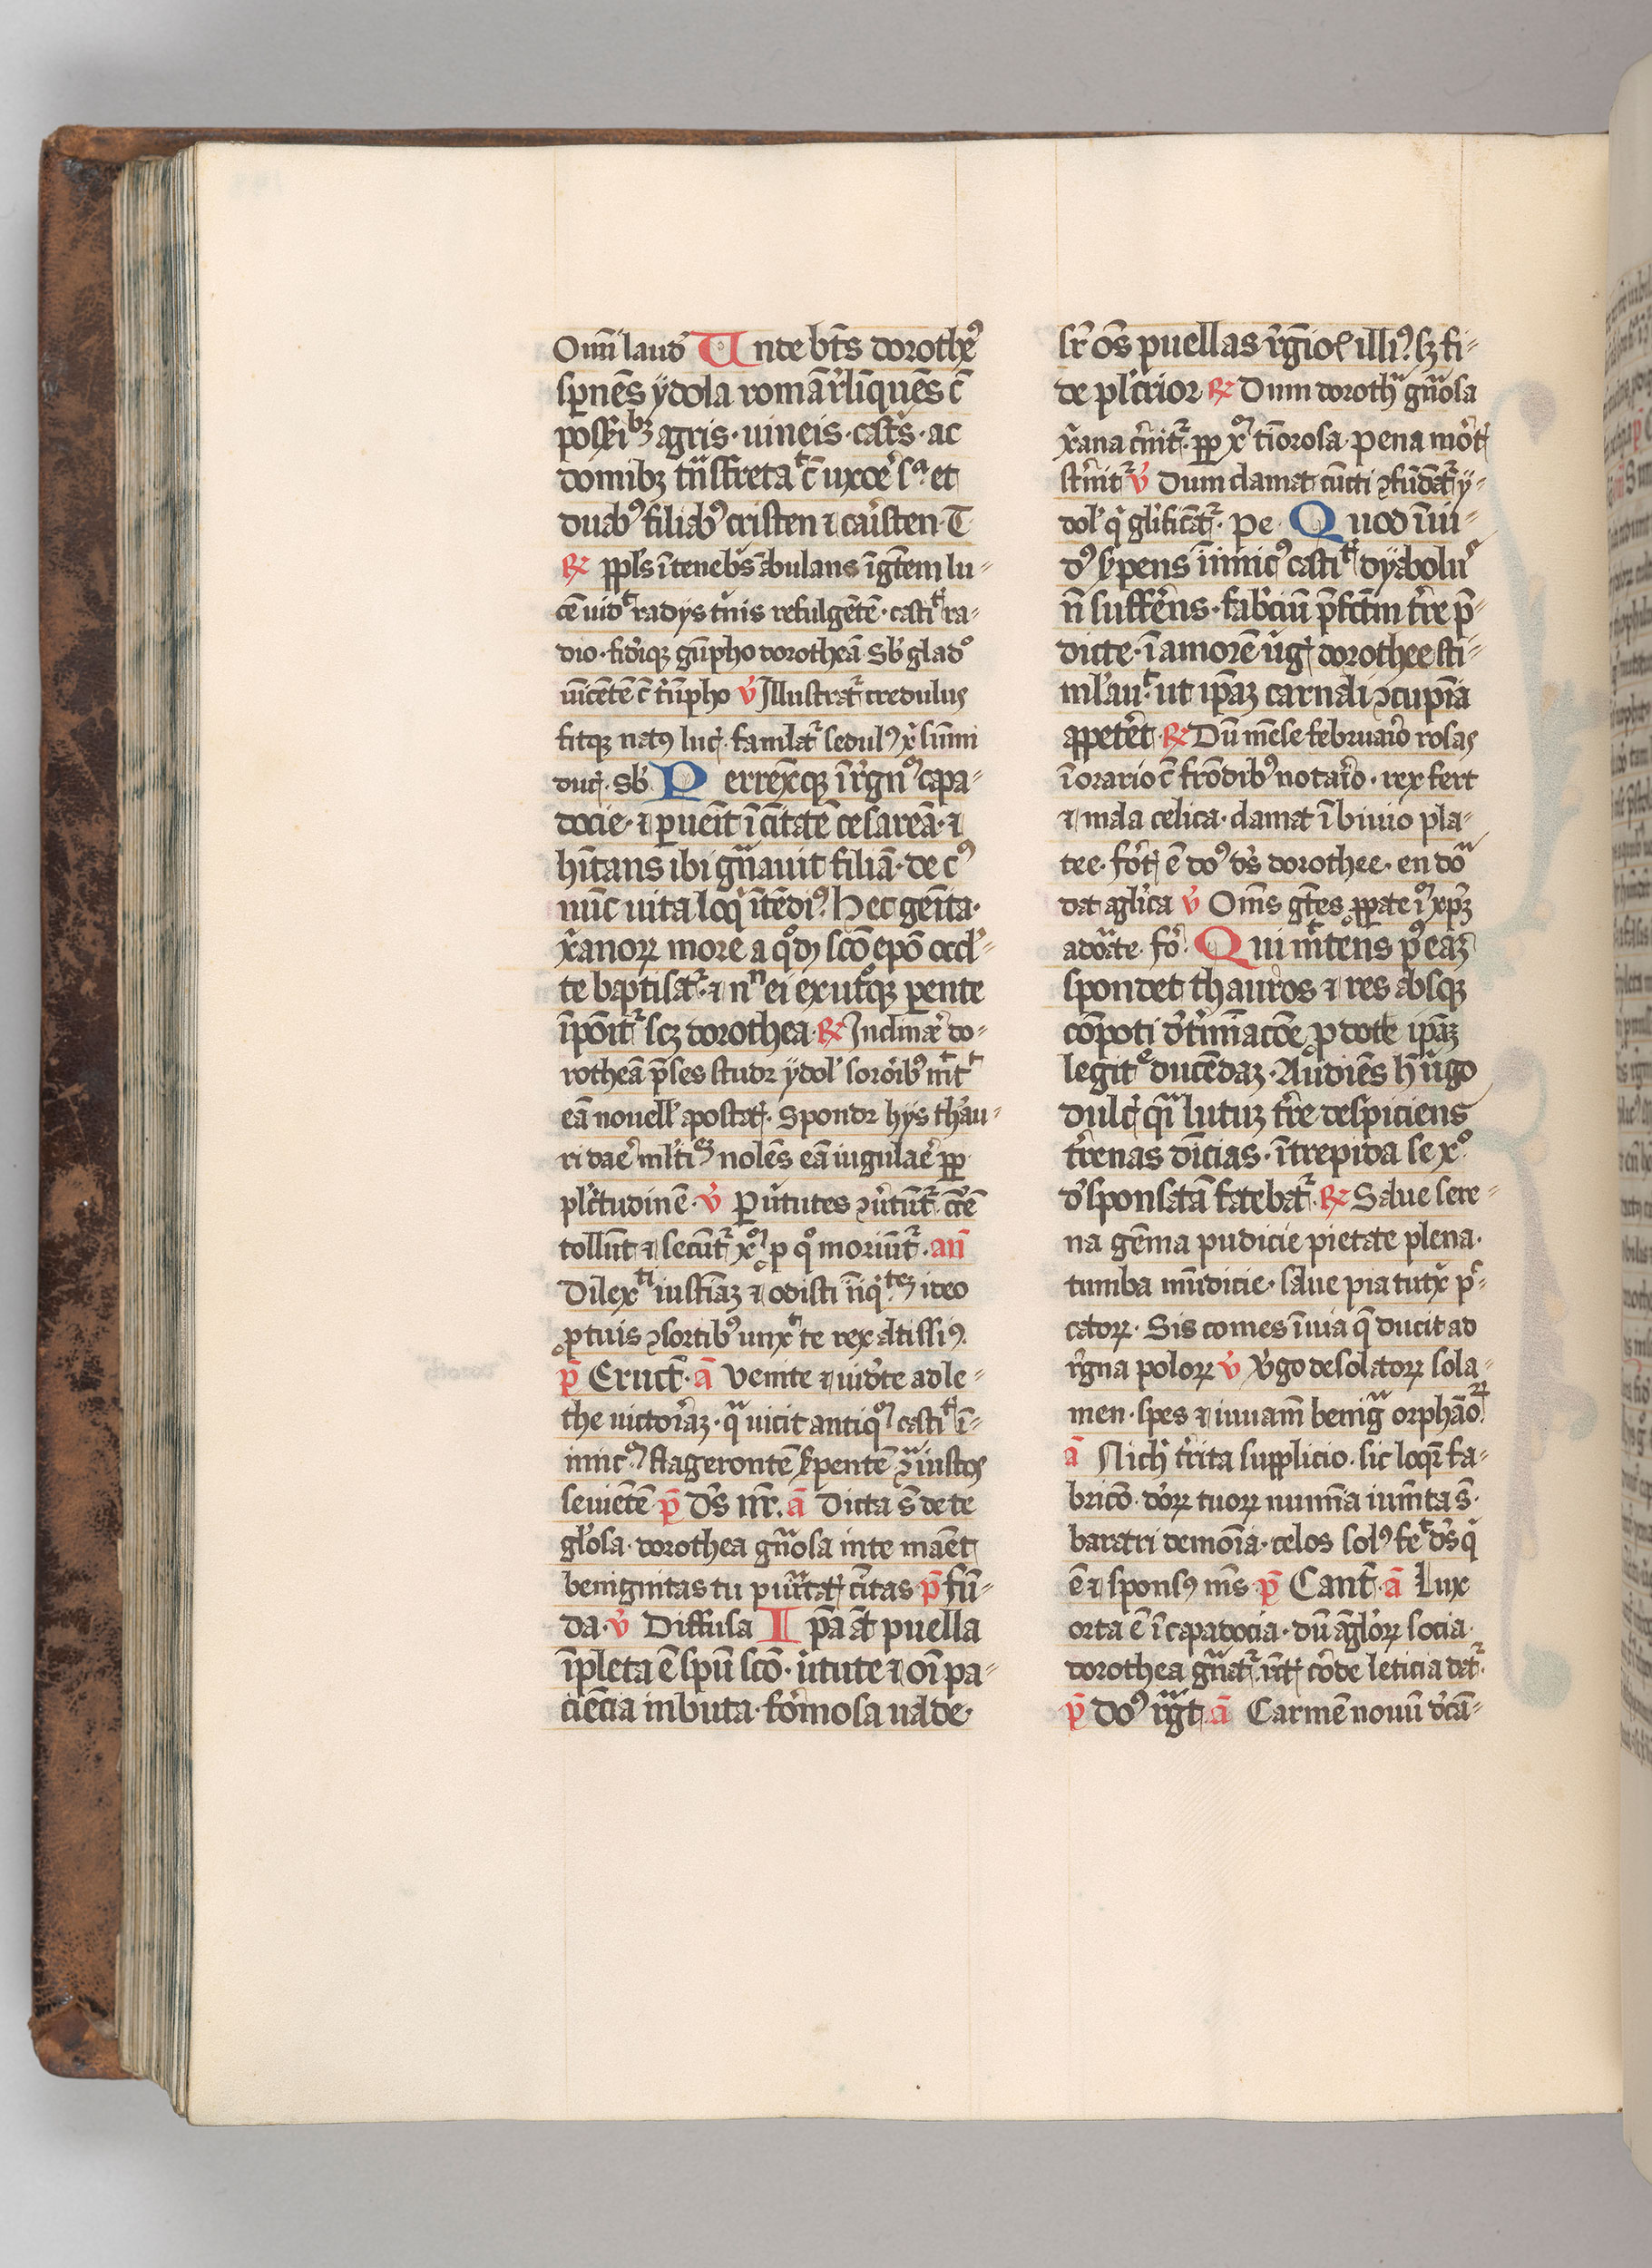 Om̄ laud Unde bt̄s dorothe᷒
sp̄nēs ydola romā rliq̄uēs c̄
possi bꝫ agris · uineis · cast̄s · ac
domibꝫ
et
duabꝰ filiabꝰ cristen ⁊ caisten · T
℟ pp̄ls ītenebs ābulans īgt̄em lu-
cē uid radijs refulgētē · casti ra-
dio · Sb̄ glad
uīcētē c̄ t̓ūpho ℣ Illustrat᷑ credulus
fitqꝫ natꝰ luc · famlat᷑ sedulꝰ x̄ sūmi
duc · sb̄ Perrexitqꝫ ī rgnū capa-
docie · ⁊ puēit ī cītatē cesareā · ⁊
hītans ibi gn̄auit filiā · de cꝰ
nūc uita loq̄ ītēdiꝰ. Hec genita ·
xanoꝝ more a qd̄ sc̄o ep̄o occl̓-
te baptisat᷑ · ⁊ nn ei ex utqꝫ pente
īpōit᷑ scꝫ dorothea · ℟ Inclinae do-
rotheā p̄ses studꝫ ydol̓ soroibꝰ mit
eā nouell̓ apostat · Spondꝫ hys thau-
ri dae᷒ nolēs eā iugulae᷒ pp̄
pl̓c̄tudinē · ℣
tollūt ⁊ secūt᷑ xp̄ p qo moriūt᷑ · an̄
Dilexti iustīaꝫ ⁊ odisti īiq̓teꝫ ideo
p̄tuis ↄsortibꝰ unx̓ te rex altissiꝰ
p̄ Eruct̄ · ā Venite ⁊ uidte adle-
the uictoraꝫ · q̄ uicit antiqū casti ī-
imicū flagerontē s̓pentē ↄ̄ iustos
seuiētē p̄ Ds̄ nr̄ · ā Dicta s̄ de te
gl̓osa · dorothea gn̄osa inte maēt
benignitas tu pietat cītas p̄ fū-
da · ℣ Diffusa Ip̄a at̄ puella
īpleta ē spū sc̄o · ūtute ⁊ oī pa-
ciēcia inbuta · formosa ualde ·
sr̄ os̄ puellas rgiōꝭ illiꝰ. sꝫ fi-
de pl̓crior ℟ Dum doroth̄ gn̄osa
xana c̄nit᷑ · pp̄ xp̄ tīorosa pena mort
st̓nit᷑ ℣ Dum clamat cūcti ↄfūdat᷑ y-
dol̓ q̓ gl̓ificāt᷑ · pe · Quod īui-
dꝰ s̓pens īimicꝰ castit dyabolꝰ
n̄ sufferns · fabriciū p̄fct̄m tr̄e p̄-
dicte · ī amorē ūg dorothee sti-
ml̓aut · ut ip̄aꝫ carnali ↄcupīa
appetet · ℟ Dū mēse februario rosas
ī orario c̄ frōdibꝰ notario · rex fert
⁊ mala celica · clamat ī biuio pla-
tee · fort ē dōꝰ ds̄ dorothee · en dōa
dat agl̓ica ℣ Oms̄ gt̄es pp̄ate
adoate · fo᷒ · Qui mittens p eaꝫ
spondet thauros ⁊ res absqꝫ
cōpoti dt̓mīacōe p dote ip̄aꝫ
legite ducēdaꝫ · Audiēs h ūgo
dulc q̄ lutuꝫ tr̄e despiciens
tr̓enas dīcias · ītrepida se xo
d̓sponsatā fatebat᷑ · ℟ Salue sere-
na gēma pudicie pietate plena ·
tumba mūdicie · salue pia tutx p̄-
catoꝝ · Sis comes ī uia q̄ ducit ad
rgna poloꝝ ℣ V̓go desolatoꝝ sola-
men · spes ⁊ iuuam̄ benigā orphāoꝝ
ā Nich̓ trita supplicio · sic loqꝫ fa-
bricō · d̓oꝝ tuoꝝ numīa iumt̄a s̄ ·
baratri demoīa · celos solꝰ fe ds̄ q̓
ē ⁊ sponsꝰ ms̄ p̄ Cant̄ · ā Lux
orta ē ī capadocia · dū āgl̓oꝝ socia ·
dorothea gn̄at᷑ · corde leticia dat᷑ ·
p̄ Dōꝰ rgt ā Carmē nouū dcā-